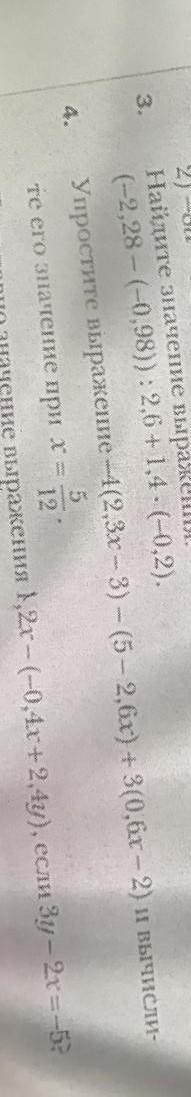 3. Найдите значение выражения:
(−2,28 − (−0,98)) : 2,6 + 1,4 · (−0,2).
4. Упростите выражение −4(2,3x − 3) − (5 − 2,6x) + 3(0,6x − 2) и вычисли-
те его значение при x = 5/12.
значение выражения 1,2x − (−0,4x + 2,4y), если 3y − 2x = −5?